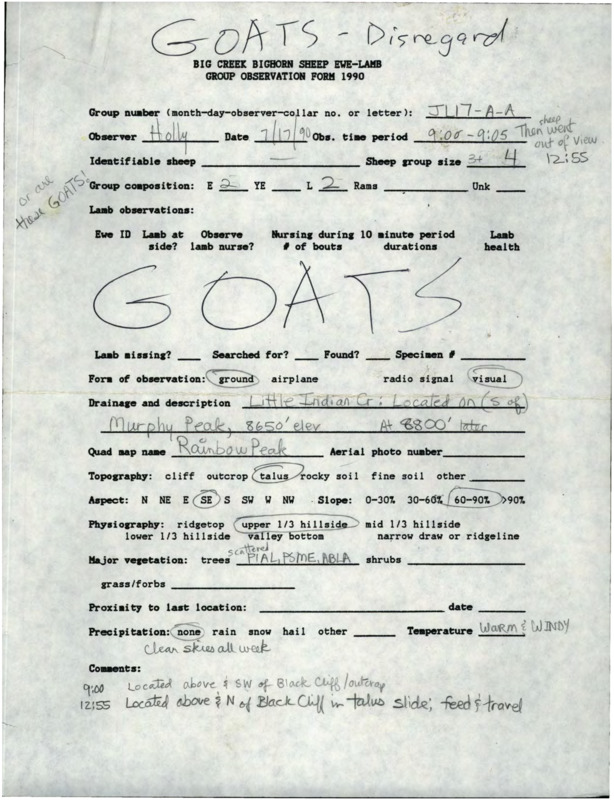 GOATS - Disregard
BIG CREEK BIGHORN SHEEP EWE-LAMB
GROUP OBSERVATION FORM 1990
Group number (month-day-observer-collar no. or letter): JL17-A-A
Observer Holly Date 7/17/90 Obs. time period 9:00-9:05 Then sheep went out of view 12:55
Identifiable sheep — Sheep group size 3+ 4
or are these GOATS!
Group composition: E 2 YE ____ L 2 Rams ____ Unk ____
Lamb observations:
Ewe ID Lamb at Observe Nursing during 10 minute period Lamb
side? lamb nurse? # of bouts durations health
GOATS
Lamb missing? ___ Searched for? ___ Found? ___ Specimen # ____
Form of observation: ground airplane radio signal visual
Drainage and description Little Indian Cr: Located on (S of)
Murphy Peak, 8650' elev At 8800' later
Quad map name Rainbow Peak Aerial photo number____
Topography: cliff outcrop talus rocky soil fine soil other ____
Aspect: N NE E SE S SW W NW Slope: 0-30% 30-60% 60-90% >90%
Physiography: ridgetop upper 1/3 hillside mid 1/3 hillside
lower 1/3 hillside valley bottom narrow draw or ridgeline
Major vegetation: trees scattered PIAL, PSME, ABLA shrubs ____
grass/forbs ____
Proximity to last location: ____ date ____
Precipitation: none rain snow hail other ____ Temperature Warm & WINDY
Clear skies all week
Comments:
9:00 Located above & SW of Black Cliff/outcrop
12:55 Located above & N of Black Cliff in talus slide; feed & travel